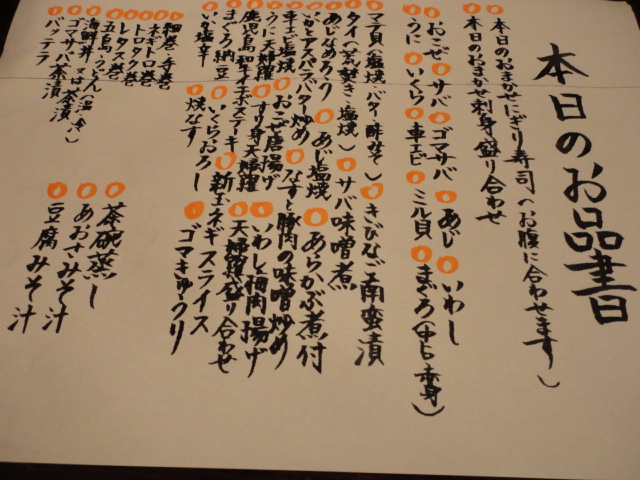 本日のお品書
本日のおまかせにぎり寿司(お腹に合わせます)
本日のおまかせ刺身盛り合わせ
おこぜ サバ ゴマサバ あじ いわし
うに いくら 車エビ ミル貝 まぐろ(中トロ・赤身)
マテ貝(塩焼・バター・酢みそ) きびなご南蛮漬
タイ(荒熨き・塩焼) サバ味噌煮
あじなめろう あじ塩焼 あらかぶ煮付
いかとアスパラバター炒め なすと豚肉の味噌炒め
車エビ塩焼 おこぜ唐揚げ いわしと梅肉揚げ
うに天婦羅 すり身天婦羅 天婦羅盛り合わせ
鹿児島和牛イチボステーキ 新玉ネギスライス
まぐろ納豆 いくらおろし ゴマきゅうり
いか塩辛 焼なす
細巻・手巻
ネギトロ巻
トロタク巻
レタス巻
五島うどん(温・冷) 茶碗蒸し
海鮮丼 又は茶漬 あおさみそ汁
ゴマサバ茶漬 豆腐みそ汁
バッテラ